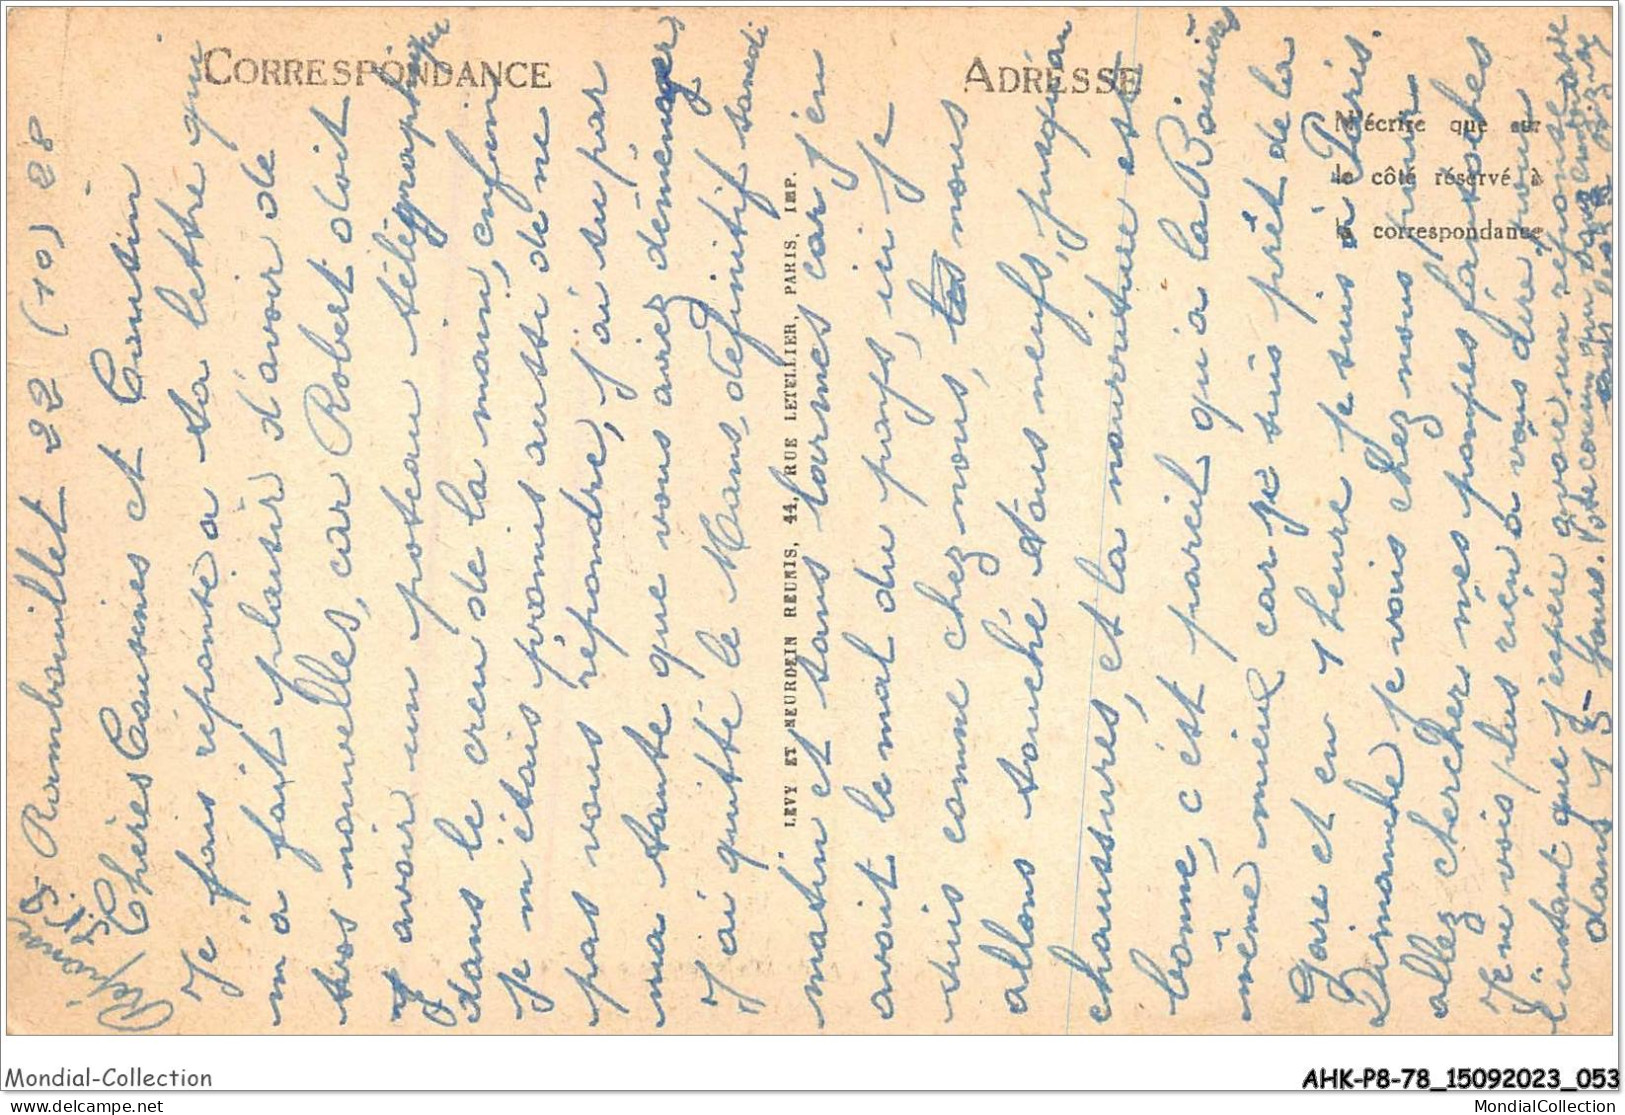 CORRESPONDANCE
ADRESSE
N'écrire que sur
le côté réservé à
la correspondance
LEVY ET NEURDEIN REUNIS, 44, RUE LETELLIER, PARIS, IMP.
Rambouillet 22 (10) 28
Réponse S.V.P.
Chères Cousines et Cousin
Je fais réponse a ta lettre qui
m'a fait plaisir d'avoir de
tes nouvelles, car Robert doit
y avoir un poteau télégraphique
dans le creu de la main, enfin
je m'étais promis aussi de ne
pas vous répondre, j'ai su par
ma tante que vous aviez démenager
J'ai quitté le Mans, définitif samedi
matin et sans larmes car j'en
avait le mal du pays, ici je
suis comme chez nous, nous
allons touché étais neufs, jusqu'au
chaussures, et la nourriture est
bonne, c'est pareil qu'a la Boissière
même mieux car je suis prêt de la
Gare et en 1 heure je suis à Paris.
Dimanche je vais chez nous pour
allez chercher mes pompes fasoches
Je ne vois plus rien à vous dire pour
l'instant que j'espère avoir un réponse
dans 15 jours. Vote cousin qui vous embrasse
Mondial-Collection
AHK-P8-78_15092023_053
MondialCollection